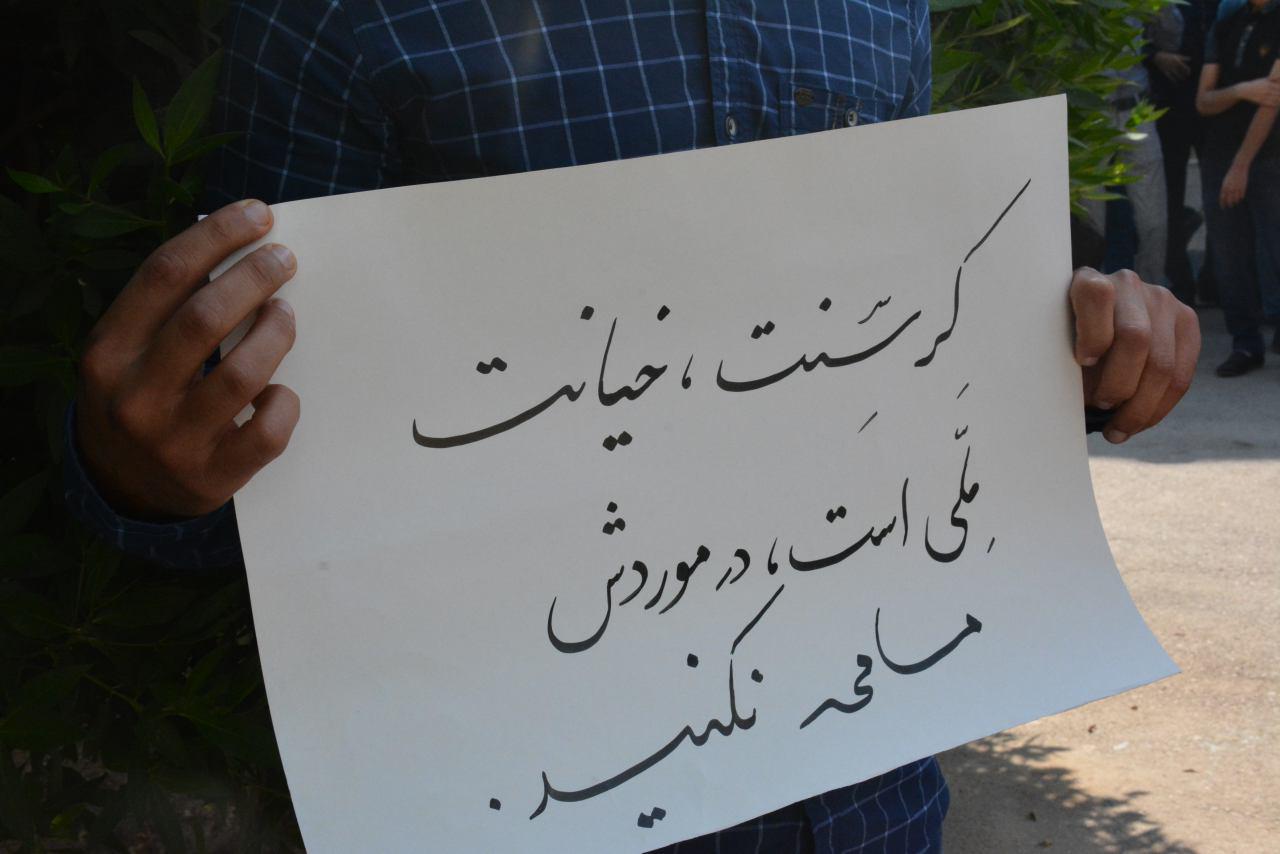 کرِسِّنت ، خیانت
مِلّی است ، در موردش
مسامحه نکنید .